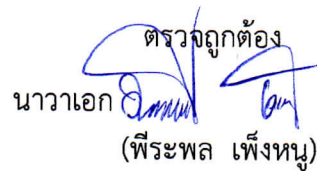 ตรวจถูกต้อง
นาวาเอก
(พีระพล เพ็งหนู)